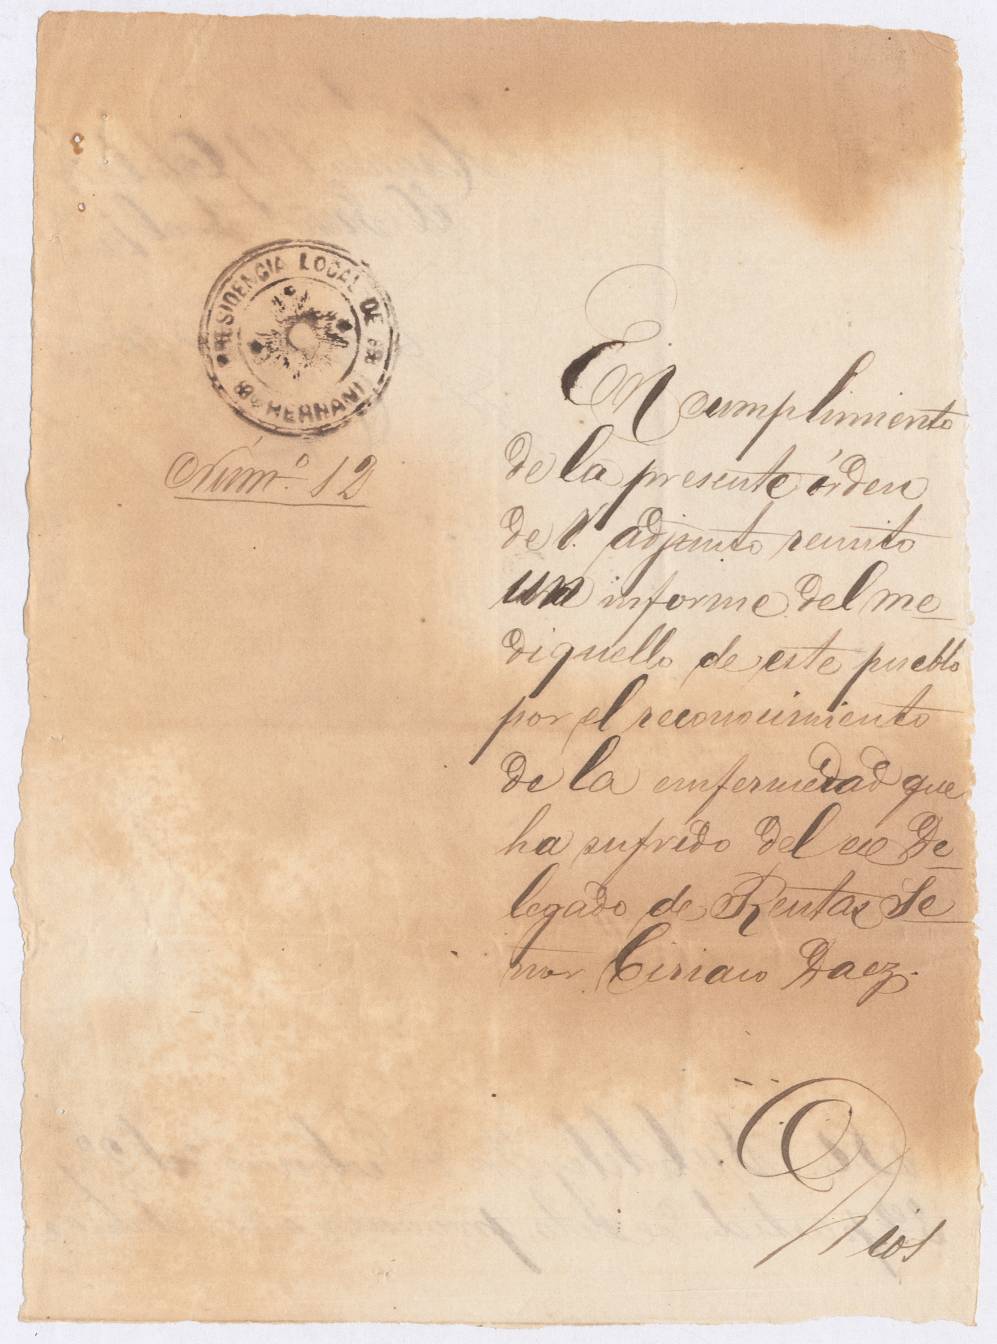 PRESIDENCIA LOCAL DE
HERNANI
Núm.º 12
En cumplimiento
de la presente órden
de V. adjunto remito
un informe del me-
diquello de este pueblo
por el reconocimiento
de la enfermedad que
ha sufrido del ex De-
legado de Rentas Se-
ñor Ciriaco Daez.
Dios